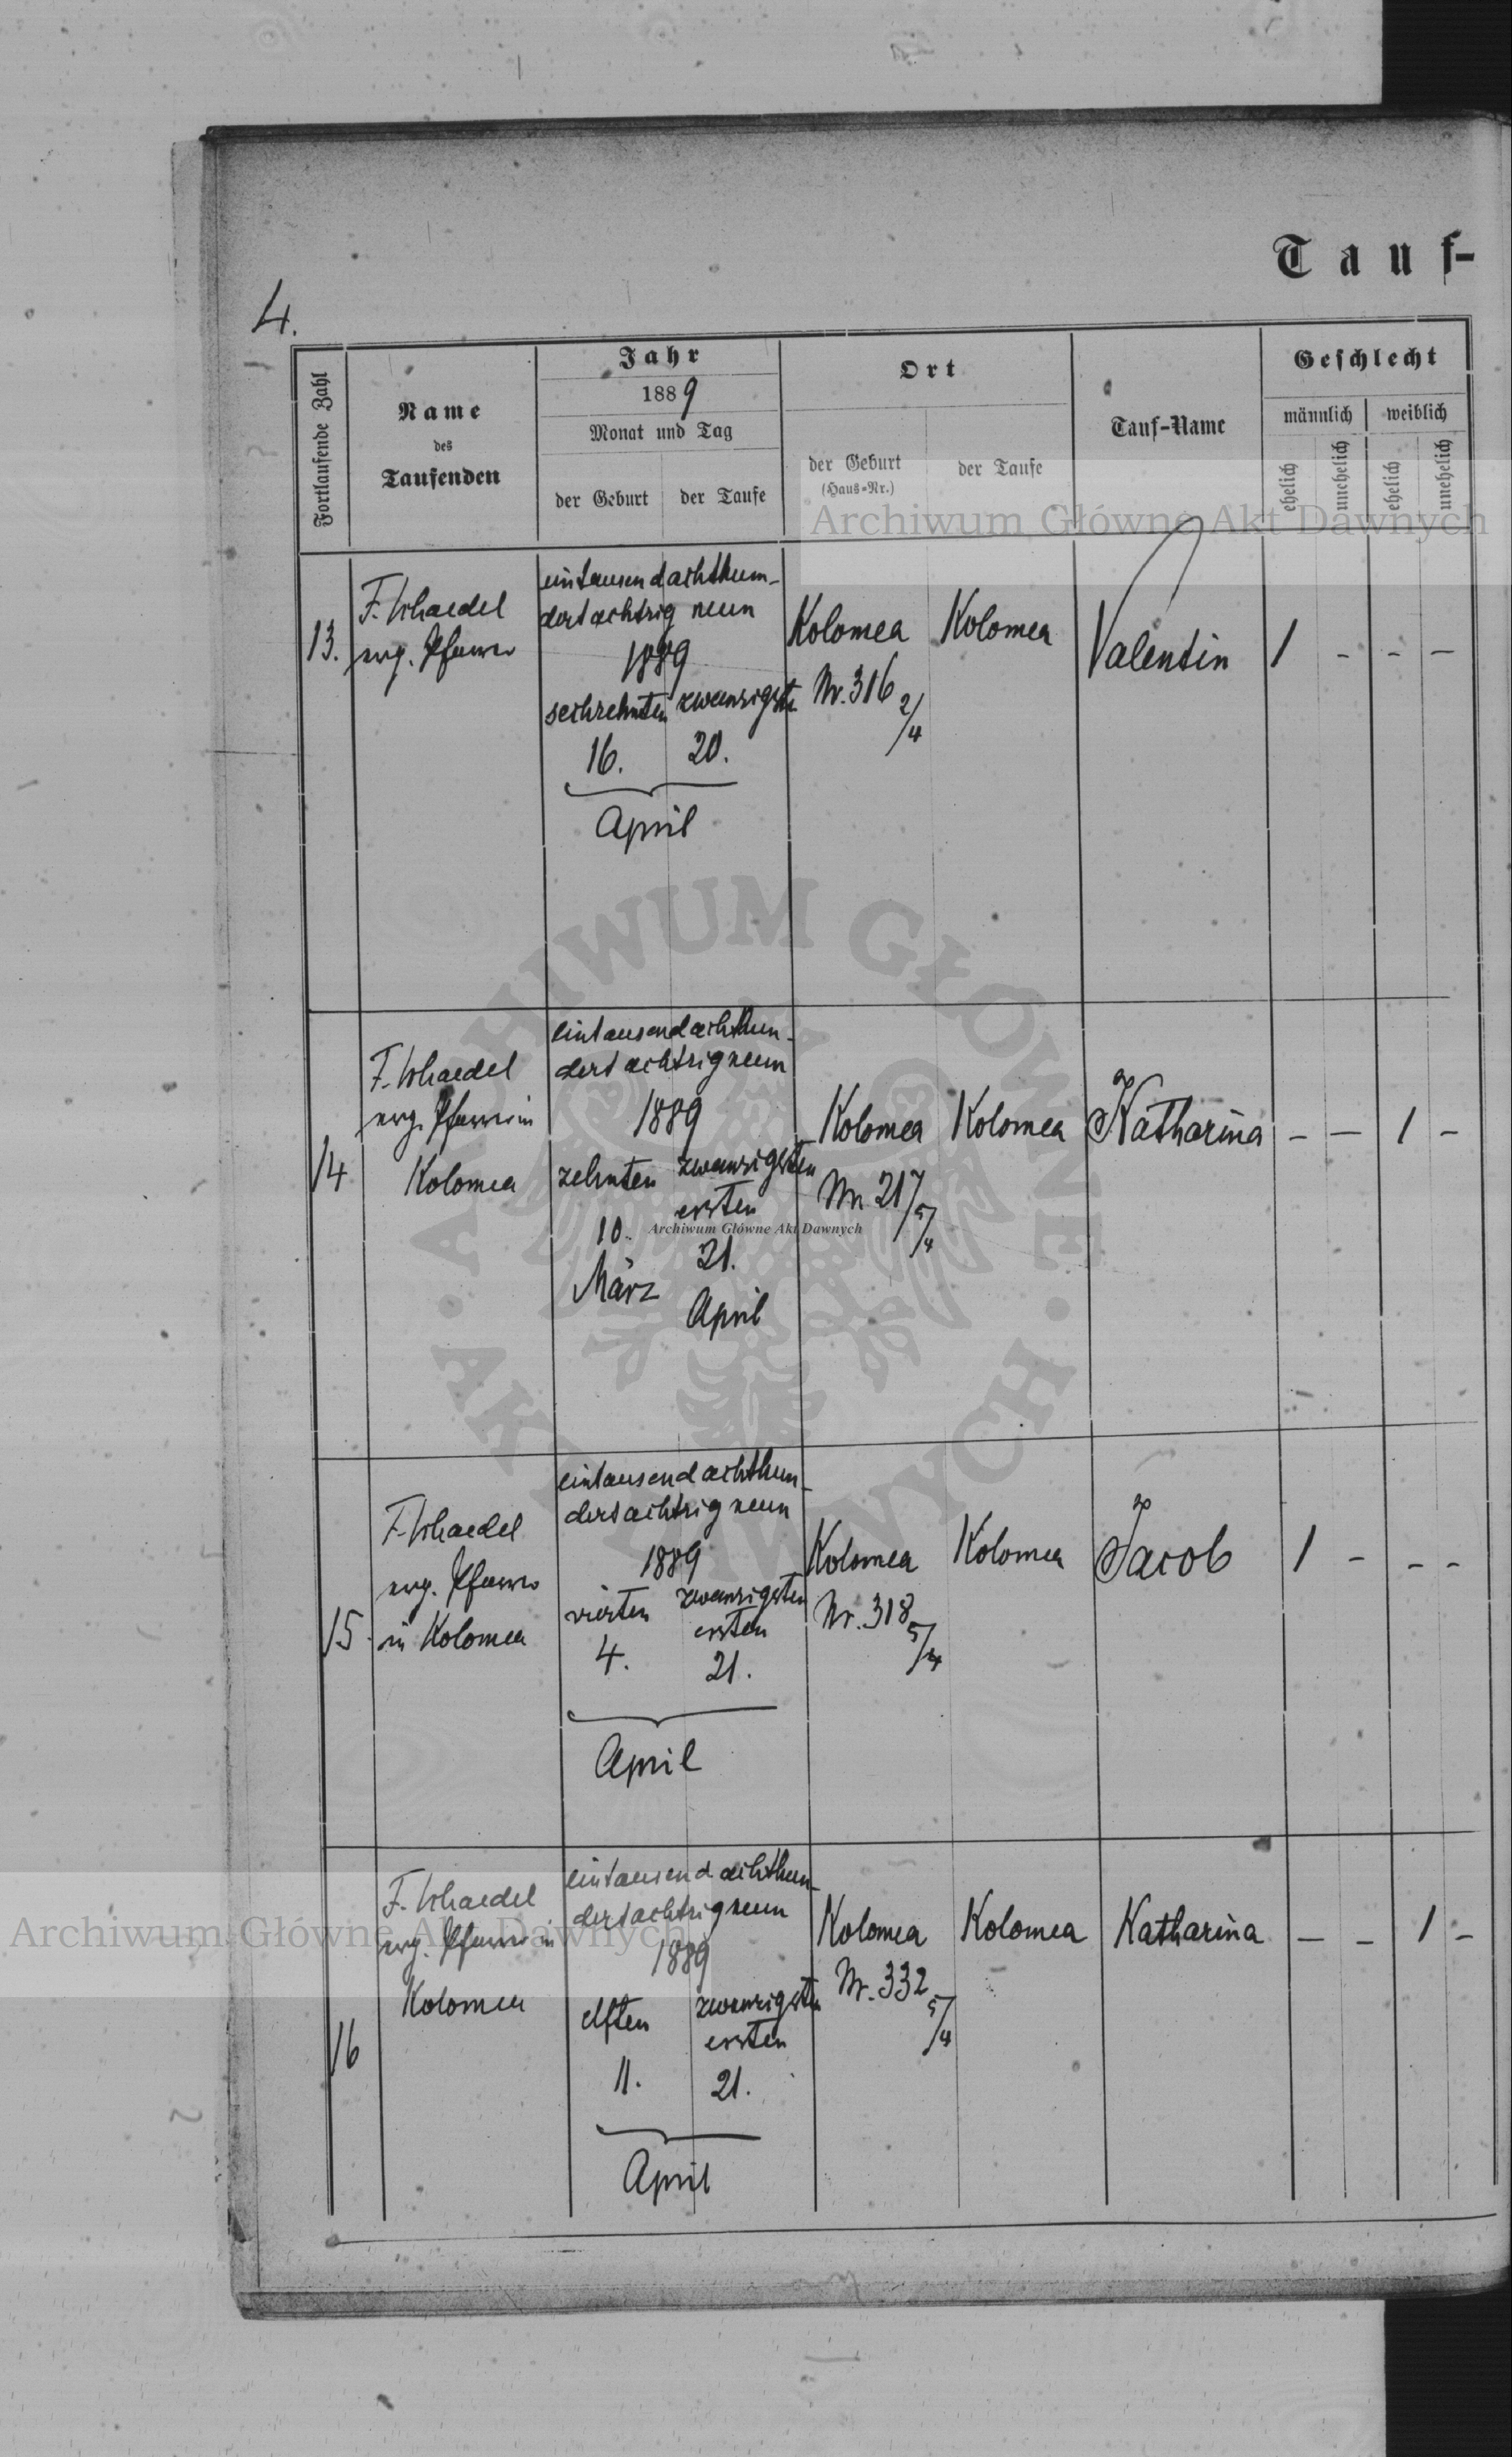 Tauf-
4.
Fortlaufende Zahl
Name
des
Taufenden
Jahr
1889
Monat und Tag
der Geburt
der Taufe
Ort
der Geburt
(Haus-Nr.)
der Taufe
Tauf-Name
Geschlecht
männlich
weiblich
ehelich
unehelich
ehelich
unehelich
Archiwum Główne Akt Dawnych
13.
F. Schaedel
evg. Pfarrer
eintausendachthun-
dertachtzig neun
1889
sechzehnten
zwanzigsten
16.
20.
April
Kolomea
Nr. 316 2/4
Kolomea
Valentin
1 - - -
14
F. Schaedel
evg. Pfarrer in
Kolomea
eintausendachthun-
dertachtzigneun
1889
zehnten
10.
März
zwanzigsten
ersten
21.
April
Kolomea
Nr. 217 5/4
Kolomea
Katharina
- - 1 -
Archiwum Główne Akt Dawnych
15.
F. Schaedel
evg. Pfarrer
in Kolomea
eintausendachthun-
dertachtzigneun
1889
vierten
4.
zwanzigsten
ersten
21.
April
Kolomea
Nr. 318 5/4
Kolomea
Jacob
1 - - -
16
F. Schaedel
evg. Pfarrer in
Kolomea
eintausendachthun-
dertachtzigneun
1889
elften
11.
zwanzigsten
ersten
21.
April
Kolomea
Nr. 332 5/4
Kolomea
Katharina
- - 1 -
Archiwum Główne Akt Dawnych
ARCHIWUM GŁÓWNE · AKT DAWNYCH ·